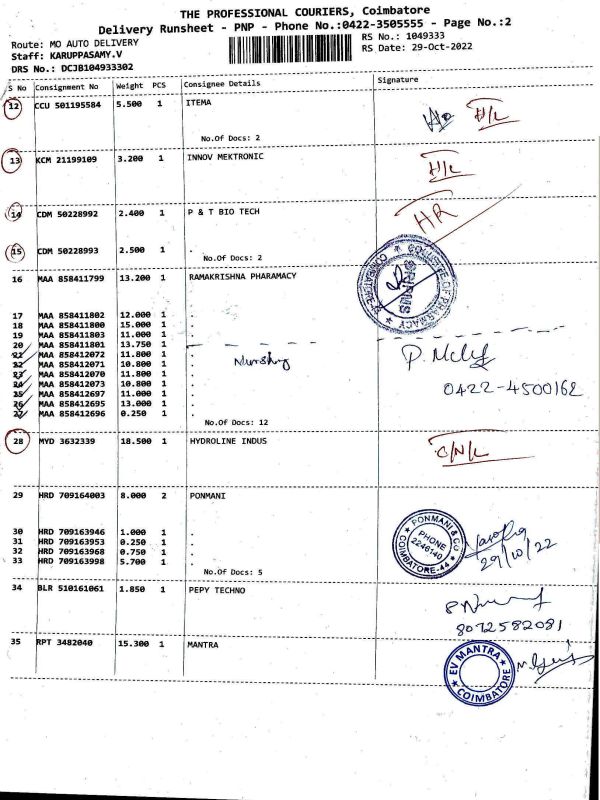 THE PROFESSIONAL COURIERS, Coimbatore
Delivery Runsheet - PNP - Phone No.:0422-3505555 - Page No.:2
Route: MO AUTO DELIVERY
Staff: KARUPPASAMY.V
DRS No.: DCJB104933302
RS No.: 1049333
RS Date: 29-Oct-2022
S No Consignment No Weight PCS Consignee Details Signature
12 CCU 501195584 5.500 1 ITEMA
No.Of Docs: 2
D/L
13 KCM 21199109 3.200 1 INNOV MEKTRONIC
D/L
14 CDM 50228992 2.400 1 P & T BIO TECH
HR
15 CDM 50228993 2.500 1 .
No.Of Docs: 2
16 MAA 858411799 13.200 1 RAMAKRISHNA PHARAMACY
COLLEGE OF PHARMACY
SRIPMS
COIMBATORE
17 MAA 858411802 12.000 1 .
18 MAA 858411800 15.000 1 .
19 MAA 858411803 11.000 1 .
20 MAA 858411801 13.750 1 .
21 MAA 858412072 11.800 1 .
22 MAA 858412071 10.800 1 .
23 MAA 858412070 11.800 1 .
24 MAA 858412073 10.800 1 .
25 MAA 858412697 11.000 1 .
26 MAA 858412695 13.000 1 .
27 MAA 858412696 0.250 1 .
0422-4500162
No.Of Docs: 12
28 MYD 3632339 18.500 1 HYDROLINE INDUS
C/N/L
29 HRD 709164003 8.000 2 PONMANI
30 HRD 709163946 1.000 1 .
31 HRD 709163953 0.250 1 .
32 HRD 709163968 0.750 1 .
33 HRD 709163998 5.700 1 .
No.Of Docs: 5
PONMANI & CO
PHONE
2246140
COIMBATORE-44
29/10/22
34 BLR 510161061 1.850 1 PEPY TECHNO
8072582081
35 RPT 3482040 15.300 1 MANTRA
EV MANTRA
COIMBATORE